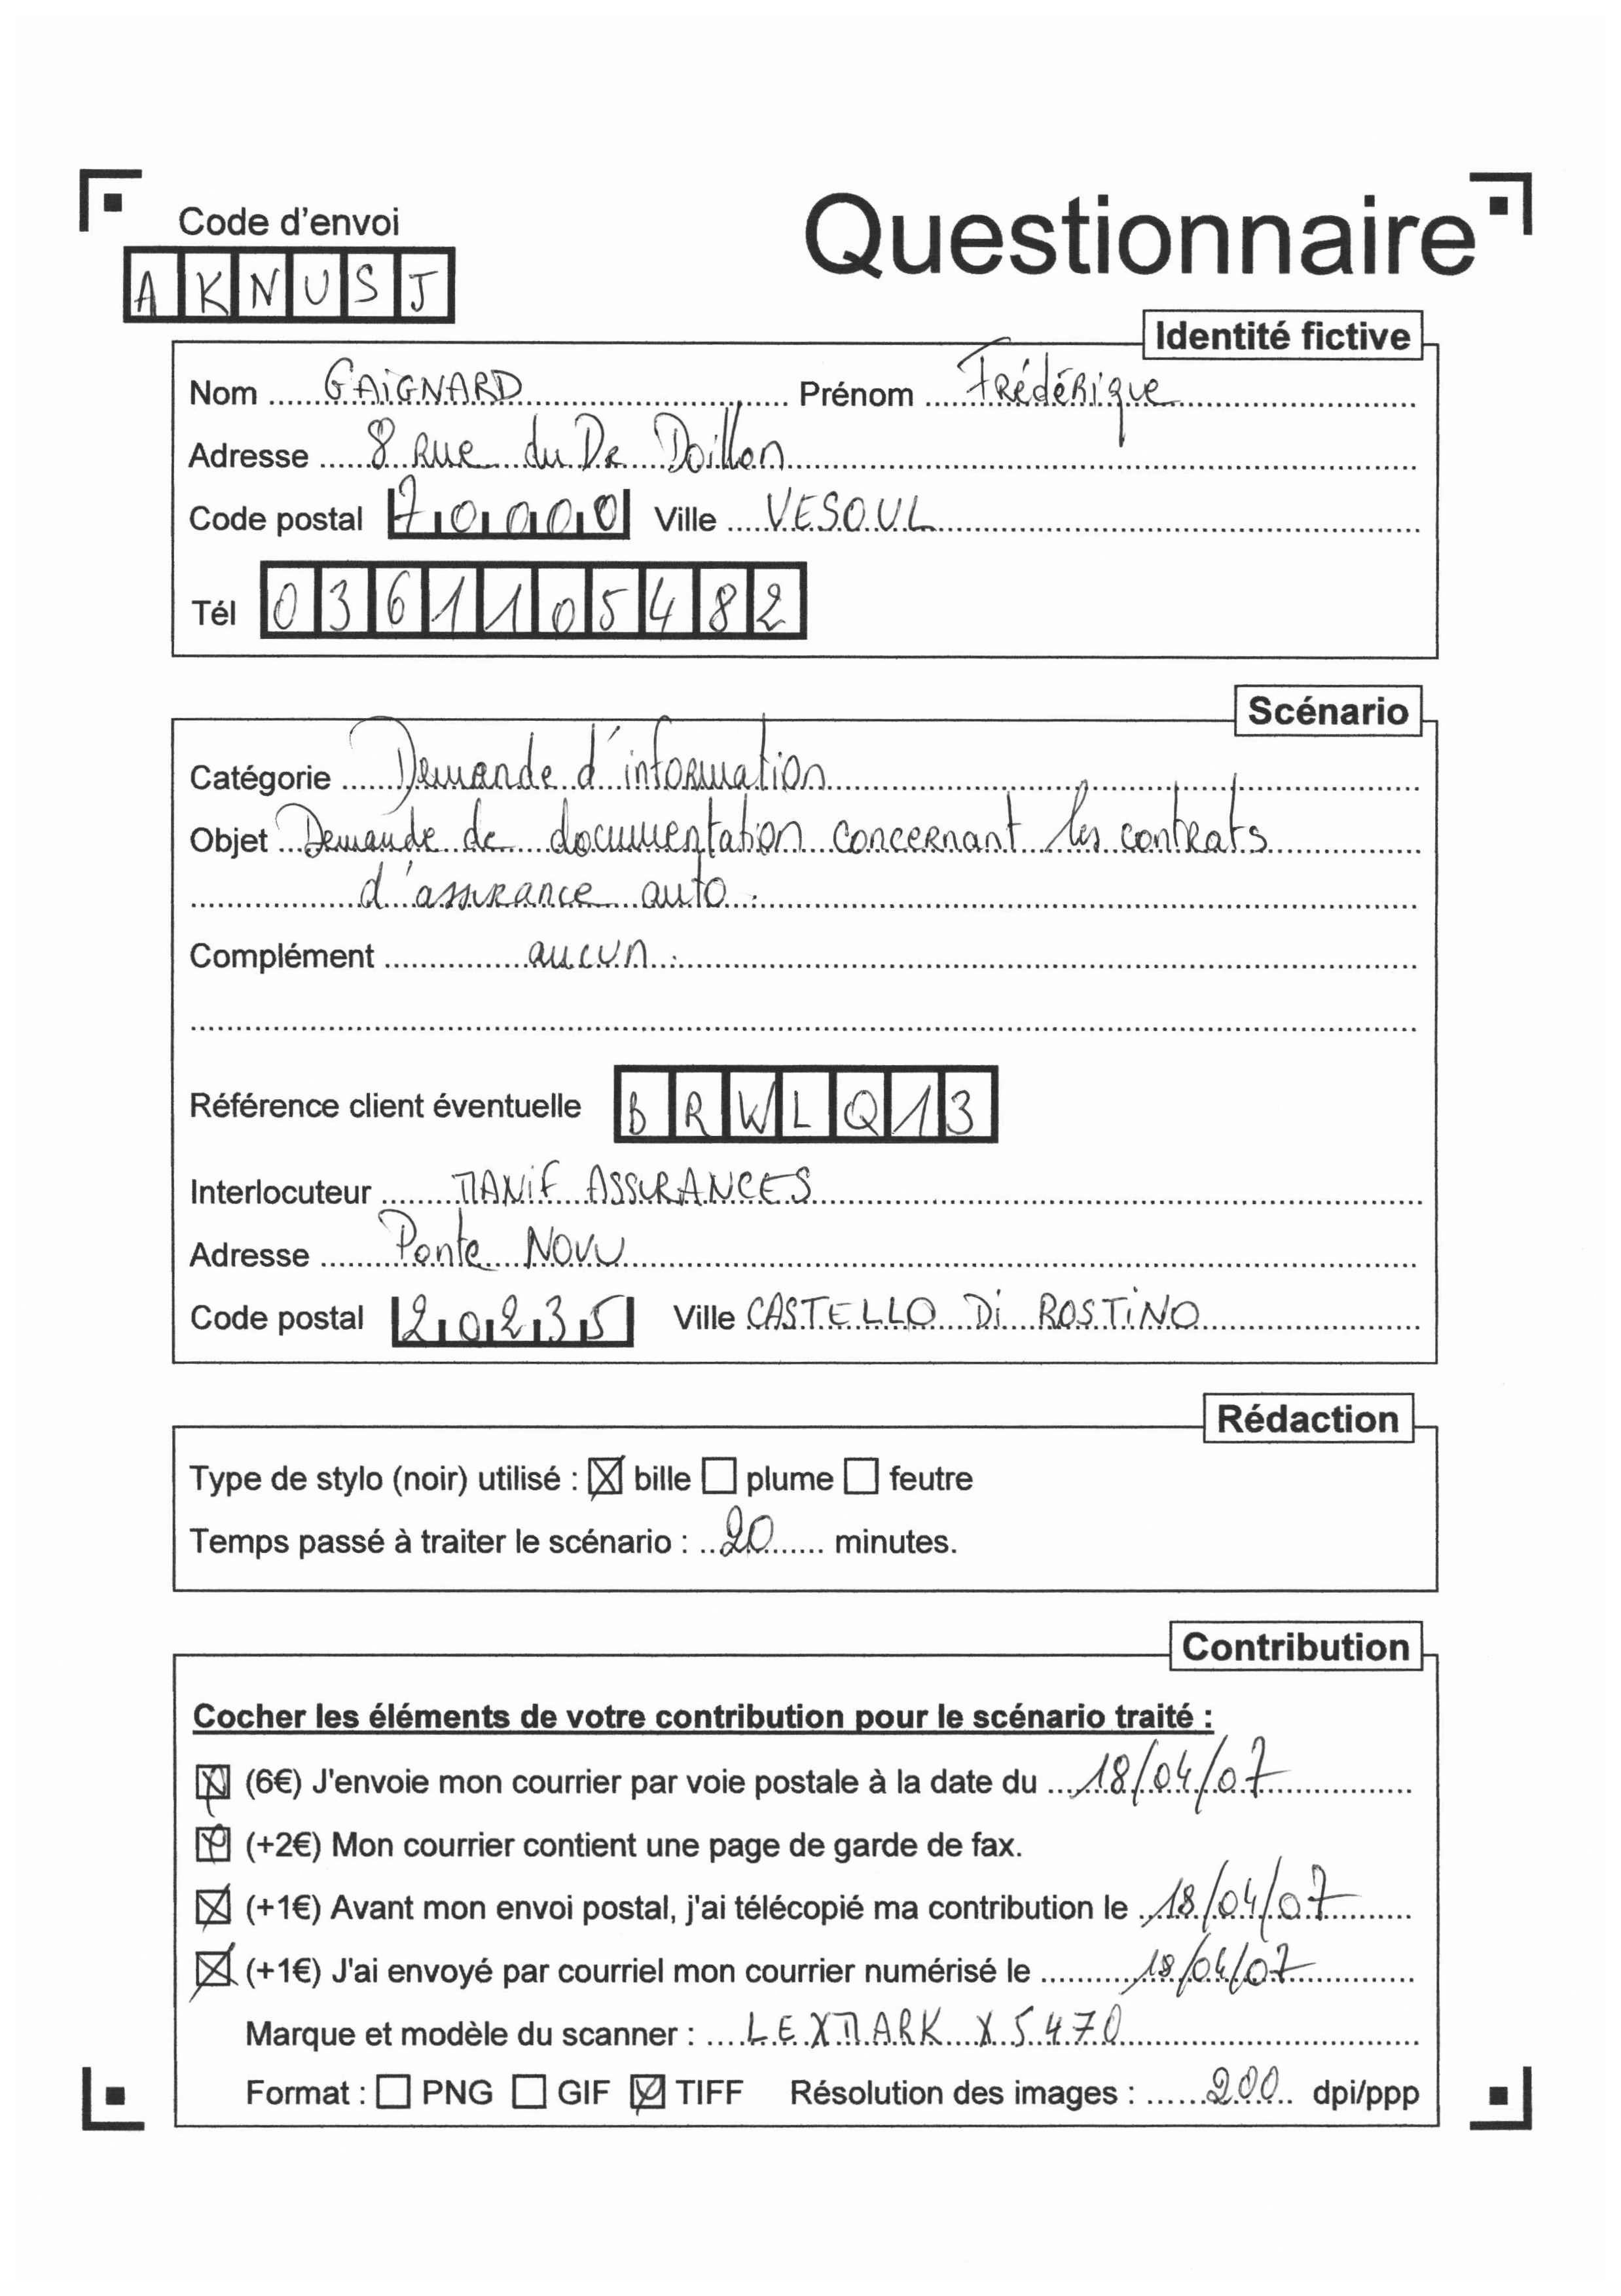 Code d'envoi
Questionnaire
AKNUSJ
Identité fictive
Nom GAIGNARD Prénom Frédérique
Adresse 8 Rue du Dr Doillon
Code postal 70000 Ville VESOUL
Tél 0361105482
Scénario
Catégorie Demande d'information
Objet Demande de documentation concernant les contrats
d'assurance auto.
Complément aucun.
Référence client éventuelle BRWLQ13
Interlocuteur MANIF ASSURANCES
Adresse Ponte Novu
Code postal 20235 Ville CASTELLO Di ROSTiNO
Rédaction
Type de stylo (noir) utilisé : ☒ bille ☐ plume ☐ feutre
Temps passé à traiter le scénario : 20 minutes.
Contribution
Cocher les éléments de votre contribution pour le scénario traité :
☒ (6€) J'envoie mon courrier par voie postale à la date du 18/04/07
☒ (+2€) Mon courrier contient une page de garde de fax.
☒ (+1€) Avant mon envoi postal, j'ai télécopié ma contribution le 18/04/07
☒ (+1€) J'ai envoyé par courriel mon courrier numérisé le 18/04/07
Marque et modèle du scanner : LEXMARK X5470
Format : ☐ PNG ☐ GIF ☒ TIFF Résolution des images : 200 dpi/ppp